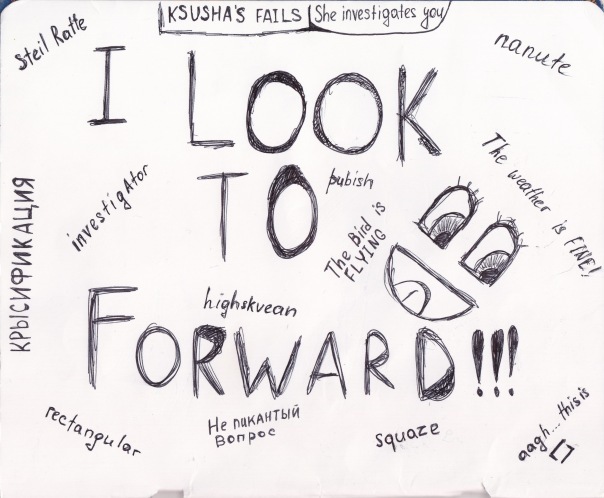 KSUSHA'S FAILS
She investigates you
Steil Ratte
nanute
I LOOK
TO
pubish
The weather is FINE!
investigAtor
The Bird is
FLYING
КРЫСИФИКАЦИЯ
highskvean
FORWARD!!!
rectangular
Не пикантый
вопрос
squaze
aagh... this is